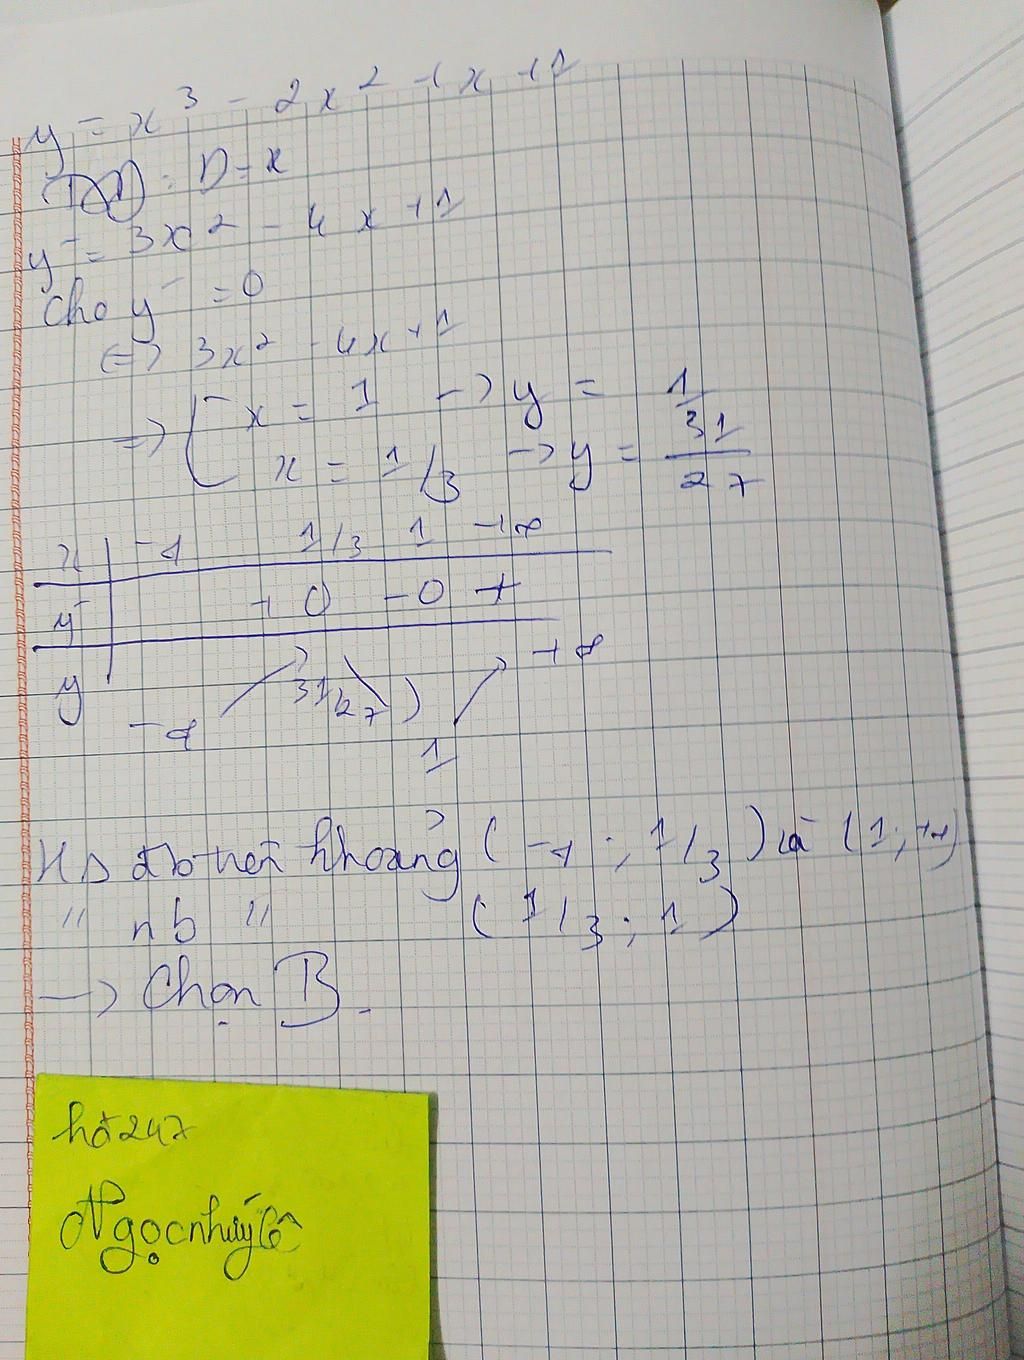 y = x³ - 2x² + x + 1
TXĐ: D = R
y' = 3x² - 4x + 1
Cho y' = 0
<=> 3x² - 4x + 1
=> [ x = 1 -> y = 1
x = 1/3 -> y = 31/27
x | -∞ 1/3 1 +∞
y' | + 0 - 0 +
y | -∞ 31/27 1 +∞
HS đb trên khoảng (-∞; 1/3) và (1; +∞)
" nb " (1/3; 1)
-> Chọn B.
hỏi 247
Ngọc